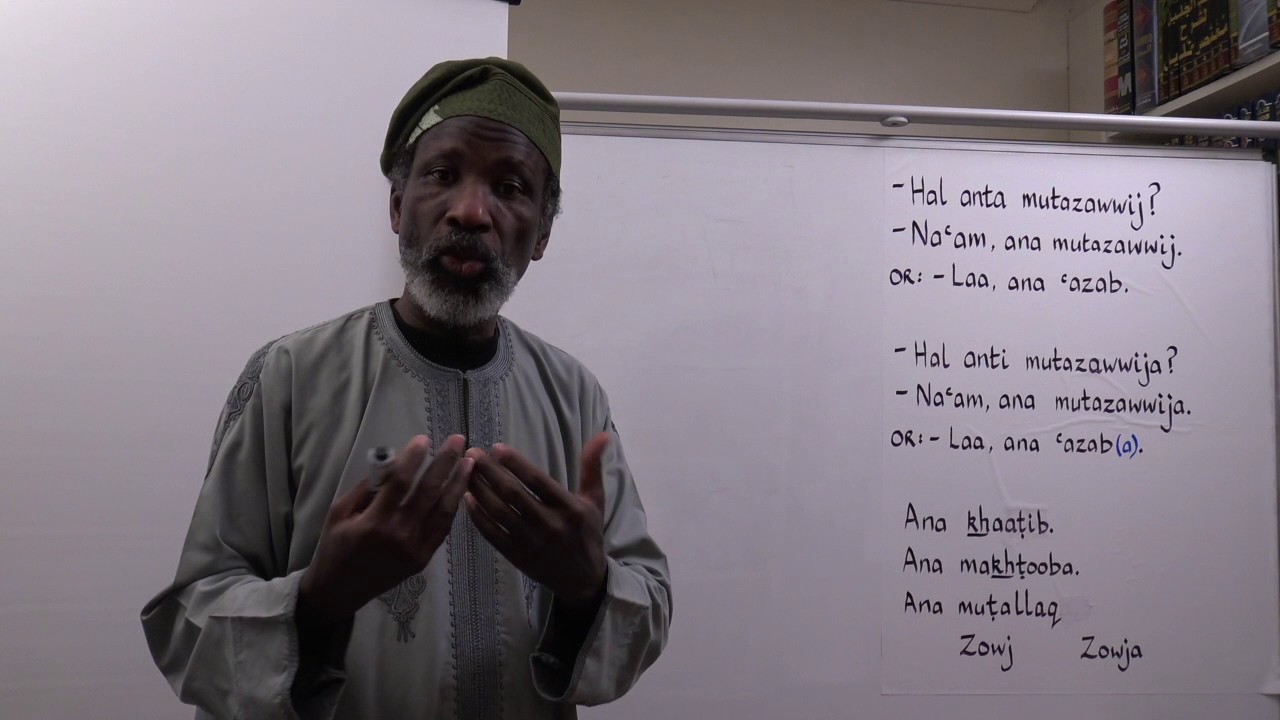 - Hal anta mutazawwij?
- Naʿam, ana mutazawwij.
OR: - Laa, ana ʿazab.
- Hal anti mutazawwija?
- Naʿam, ana mutazawwija.
OR: - Laa, ana ʿazab(a).
Ana khaaṭib.
Ana makhṭooba.
Ana muṭallaq
Zowj Zowja